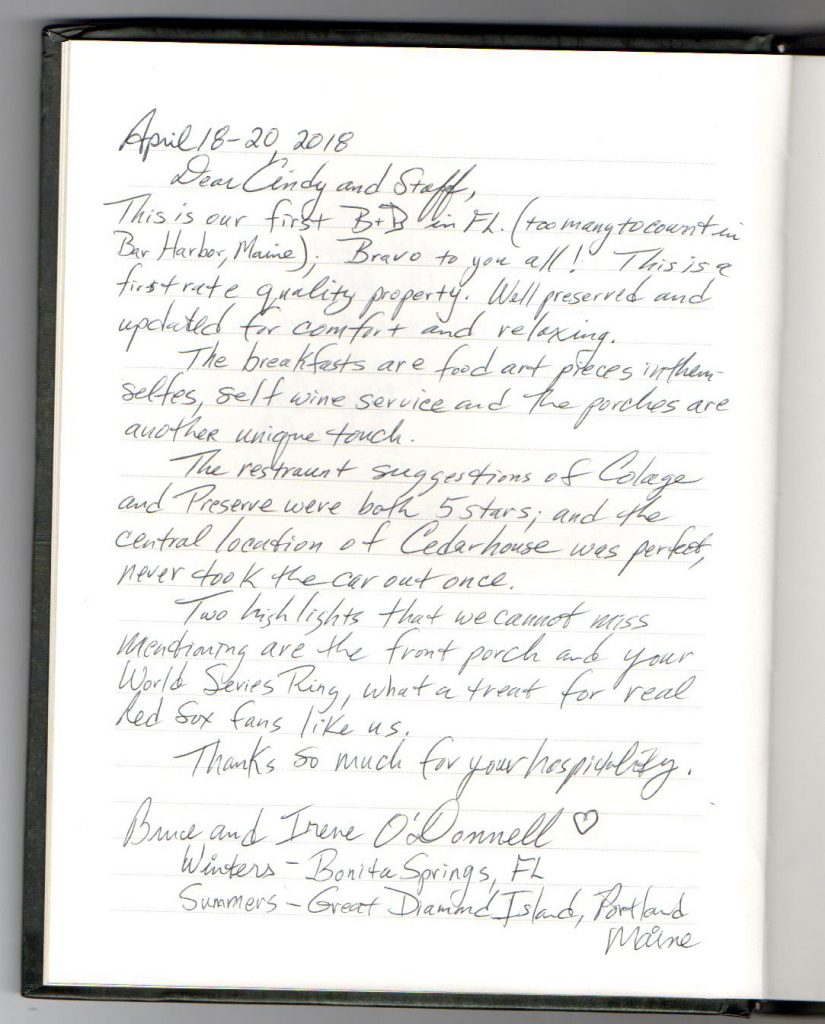 April 18-20, 2018
Dear Cindy and Staff,
This is our first B+B in FL. (too many to count in
Bar Harbor, Maine); Bravo to you all! This is a
first rate quality property. Well preserved and
updated for comfort and relaxing.
The breakfasts are food art pieces in them-
selfes, self wine service and the porches are
another unique touch.
The restraunt suggestions of Colage
and Preserve were both 5 stars; and the
central location of Cedarhouse was perfect,
never took the car out once.
Two highlights that we cannot miss
mentioning are the front porch and your
World Series Ring, what a treat for real
Red Sox fans like us.
Thanks so much for your hospitality.
Bruce and Irene O'Donnell ♡
Winters - Bonita Springs, FL
Summers - Great Diamond Island, Portland
Maine